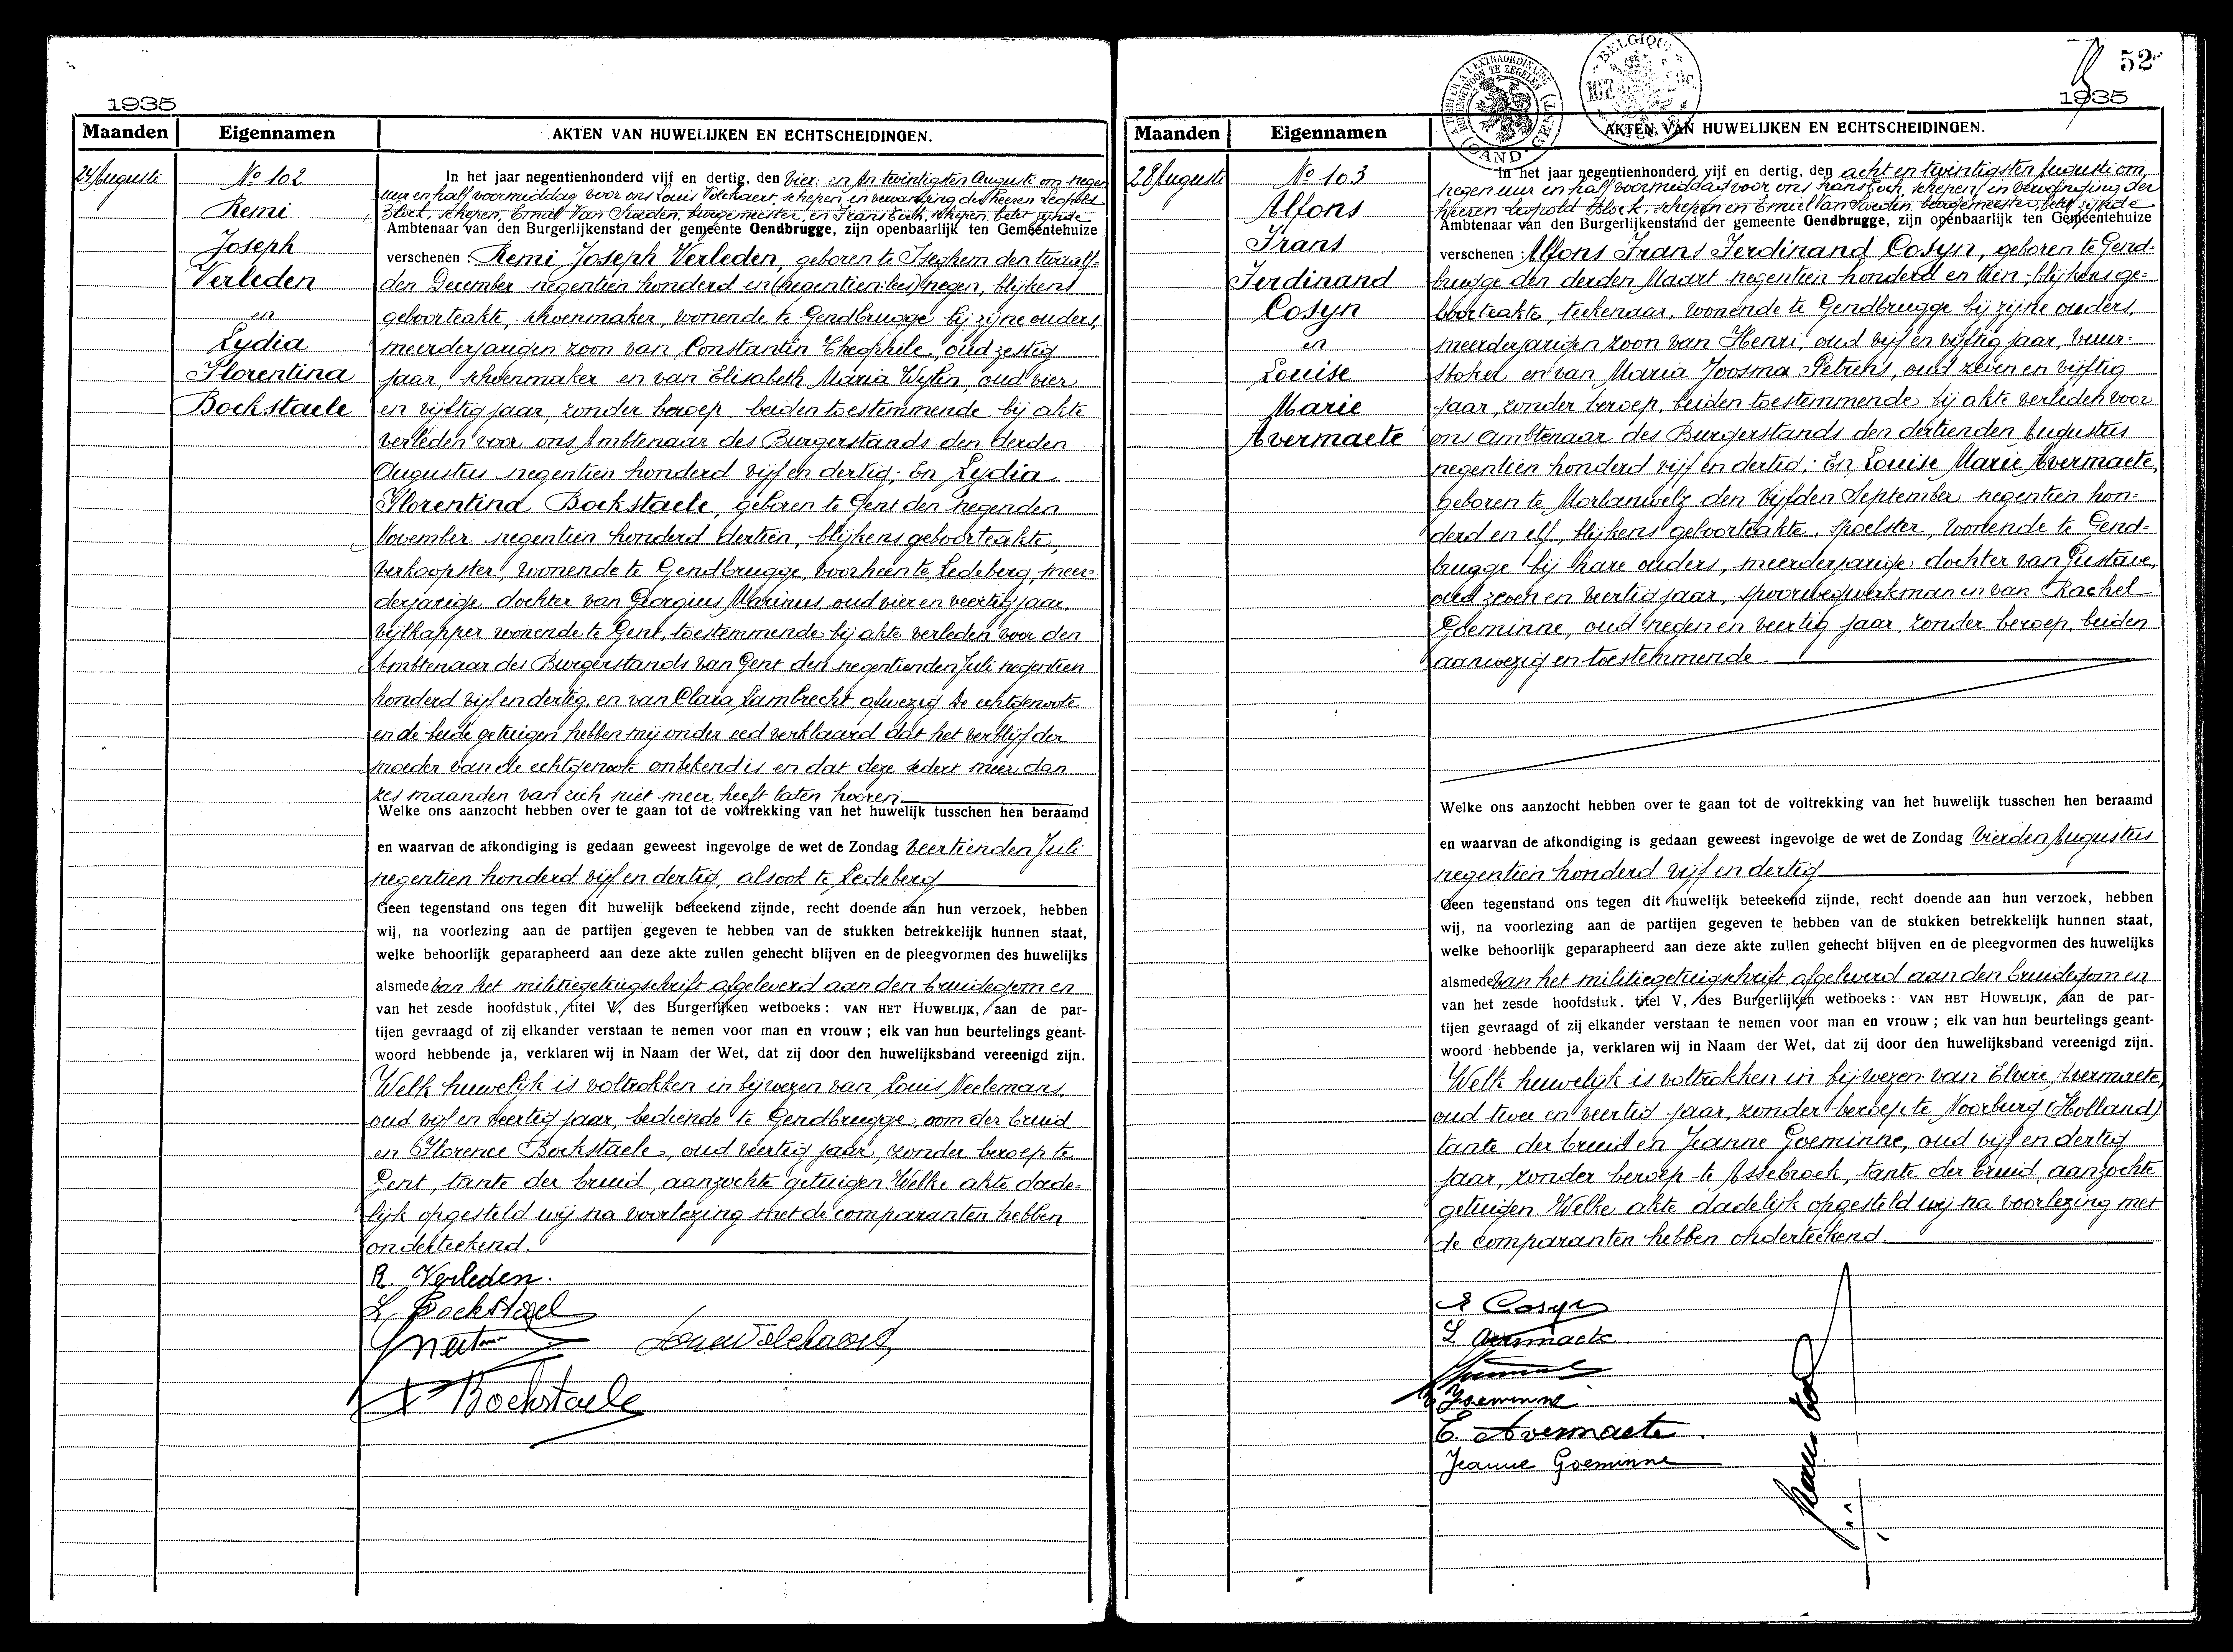 1935
Maanden
Eigennamen
AKTEN VAN HUWELIJKEN EN ECHTSCHEIDINGEN.
24 Augusti
No 102
Remi
Joseph
Verleden
en
Lydia
Florentina
Bockstaele
In het jaar negentienhonderd vijf en dertig, den vier en twintigsten Augusti om negen
uur en half voormiddag voor ons Louis Volckaert, schepen, in vervanging der heeren Leopold
Block, schepen, Emiel Van Sweden, burgemeester, en Frans Cock, schepen, belet zijnde
Ambtenaar van den Burgerlijkenstand der gemeente Gendbrugge, zijn openbaarlijk ten Gemeentehuize
verschenen : Remi Joseph Verleden, geboren te Iseghem den twaalf-
den December negentien honderd en (negentien:lees) negen, blijkens
geboorteakte, schoenmaker, wonende te Gendbrugge bij zijne ouders,
meerderjarigen zoon van Constantin Theophile, oud zestig
jaar, schoenmaker en van Elisabeth Maria Wylin, oud vier
en vijftig jaar, zonder beroep beiden toestemmende bij akte
verleden voor ons Ambtenaar des Burgerstands den derden
Augustus negentien honderd vijf en dertig; En Lydia
Florentina Bockstaele, geboren te Gent den negenden
November negentien honderd dertien, blijkens geboorteakte,
verkoopster, wonende te Gendbrugge, voorheen te Ledeberg, meer-
derjarige dochter van Georgius Marinus, oud vier en veertig jaar,
vijlkapper wonende te Gent, toestemmende bij akte verleden voor den
Ambtenaar des Burgerstands van Gent den negentienden Juli negentien
honderd vijf en dertig, en van Clara Lambrecht, afwezig De echtgenoote
en de beide getuigen hebben mij onder eed verklaard dat het verblijf der
moeder van de echtgenoote onbekend is en dat deze sedert meer dan
zes maanden van zich niet meer heeft laten hooren
Welke ons aanzocht hebben over te gaan tot de voltrekking van het huwelijk tusschen hen beraamd
en waarvan de afkondiging is gedaan geweest ingevolge de wet de Zondag veertienden Juli
negentien honderd vijf en dertig, alsook te Ledeberg
Geen tegenstand ons tegen dit huwelijk beteekend zijnde, recht doende aan hun verzoek, hebben
wij, na voorlezing aan de partijen gegeven te hebben van de stukken betrekkelijk hunnen staat,
welke behoorlijk geparapheerd aan deze akte zullen gehecht blijven en de pleegvormen des huwelijks
alsmede van het militiegetuigschrift afgeleverd aan den bruidegom en
van het zesde hoofdstuk, titel V, des Burgerlijken wetboeks : VAN HET HUWELIJK, aan de par-
tijen gevraagd of zij elkander verstaan te nemen voor man en vrouw ; elk van hun beurtelings geant-
woord hebbende ja, verklaren wij in Naam der Wet, dat zij door den huwelijksband vereenigd zijn.
Welk huwelijk is voltrokken in bijwezen van Louis Neelemans,
oud vijf en veertig jaar, bediende te Gendbrugge, oom der bruid
en Florence Bockstaele, oud veertig jaar, zonder beroep te
Gent, tante der bruid, aanzochte getuigen Welke akte dade-
lijk opgesteld wij na voorlezing met de comparanten hebben
onderteekend.
R. Verleden.
L. Bockstael
Bockstaele
52
1935
Maanden
Eigennamen
AKTEN VAN HUWELIJKEN EN ECHTSCHEIDINGEN.
28 Augusti
No 103
Alfons
Frans
Ferdinand
Cosyn
en
Louise
Marie
Avermaete
In het jaar negentienhonderd vijf en dertig, den acht en twintigsten Augusti om
negen uur en half voormiddag voor ons Frans Cock, schepen, in vervanging der
heeren Leopold Block, schepen en Emiel Van Sweden, burgemeester, belet zijnde
Ambtenaar van den Burgerlijkenstand der gemeente Gendbrugge, zijn openbaarlijk ten Gemeentehuize
verschenen : Alfons Frans Ferdinand Cosyn, geboren te Gend-
brugge den derden Maart negentien honderd en tien, blijkens ge-
boorteakte, teekenaar, wonende te Gendbrugge bij zijne ouders,
meerderjarigen zoon van Henri, oud vijf en vijftig jaar, vuur-
stoker en van Maria Joosma Petrens, oud zeven en vijftig
jaar, zonder beroep, beiden toestemmende bij akte verleden voor
ons ambtenaar des Burgerstands den dertienden Augustus
negentien honderd vijf en dertig; En Louise Marie Avermaete,
geboren te Morlanwelz den vijfden September negentien hon-
derd en elf, blijkens geboorteakte, spoelster, wonende te Gend-
brugge bij hare ouders, meerderjarige dochter van Gustave,
oud zeven en veertig jaar, spoorwegwerkman en van Rachel
Goeminne, oud negen en veertig jaar, zonder beroep, beiden
aanwezig en toestemmende
Welke ons aanzocht hebben over te gaan tot de voltrekking van het huwelijk tusschen hen beraamd
en waarvan de afkondiging is gedaan geweest ingevolge de wet de Zondag vierden Augustus
negentien honderd vijf en dertig
Geen tegenstand ons tegen dit huwelijk beteekend zijnde, recht doende aan hun verzoek, hebben
wij, na voorlezing aan de partijen gegeven te hebben van de stukken betrekkelijk hunnen staat,
welke behoorlijk geparapheerd aan deze akte zullen gehecht blijven en de pleegvormen des huwelijks
alsmede van het militiegetuigschrift afgeleverd aan den bruidegom en
van het zesde hoofdstuk, titel V, des Burgerlijken wetboeks : VAN HET HUWELIJK, aan de par-
tijen gevraagd of zij elkander verstaan te nemen voor man en vrouw ; elk van hun beurtelings geant-
woord hebbende ja, verklaren wij in Naam der Wet, dat zij door den huwelijksband vereenigd zijn.
Welk huwelijk is voltrokken in bijwezen van Elvire Avermaete,
oud twee en veertig jaar, zonder beroep te Voorburg (Holland)
tante der bruid en Jeanne Goeminne, oud vijf en dertig
jaar, zonder beroep te Assebroek, tante der bruid, aanzochte
getuigen Welke akte dadelijk opgesteld wij na voorlezing met
de comparanten hebben onderteekend.
Cosyn
L Avermaete
Goeminne
E. Avermaete.
Jeanne Goeminne